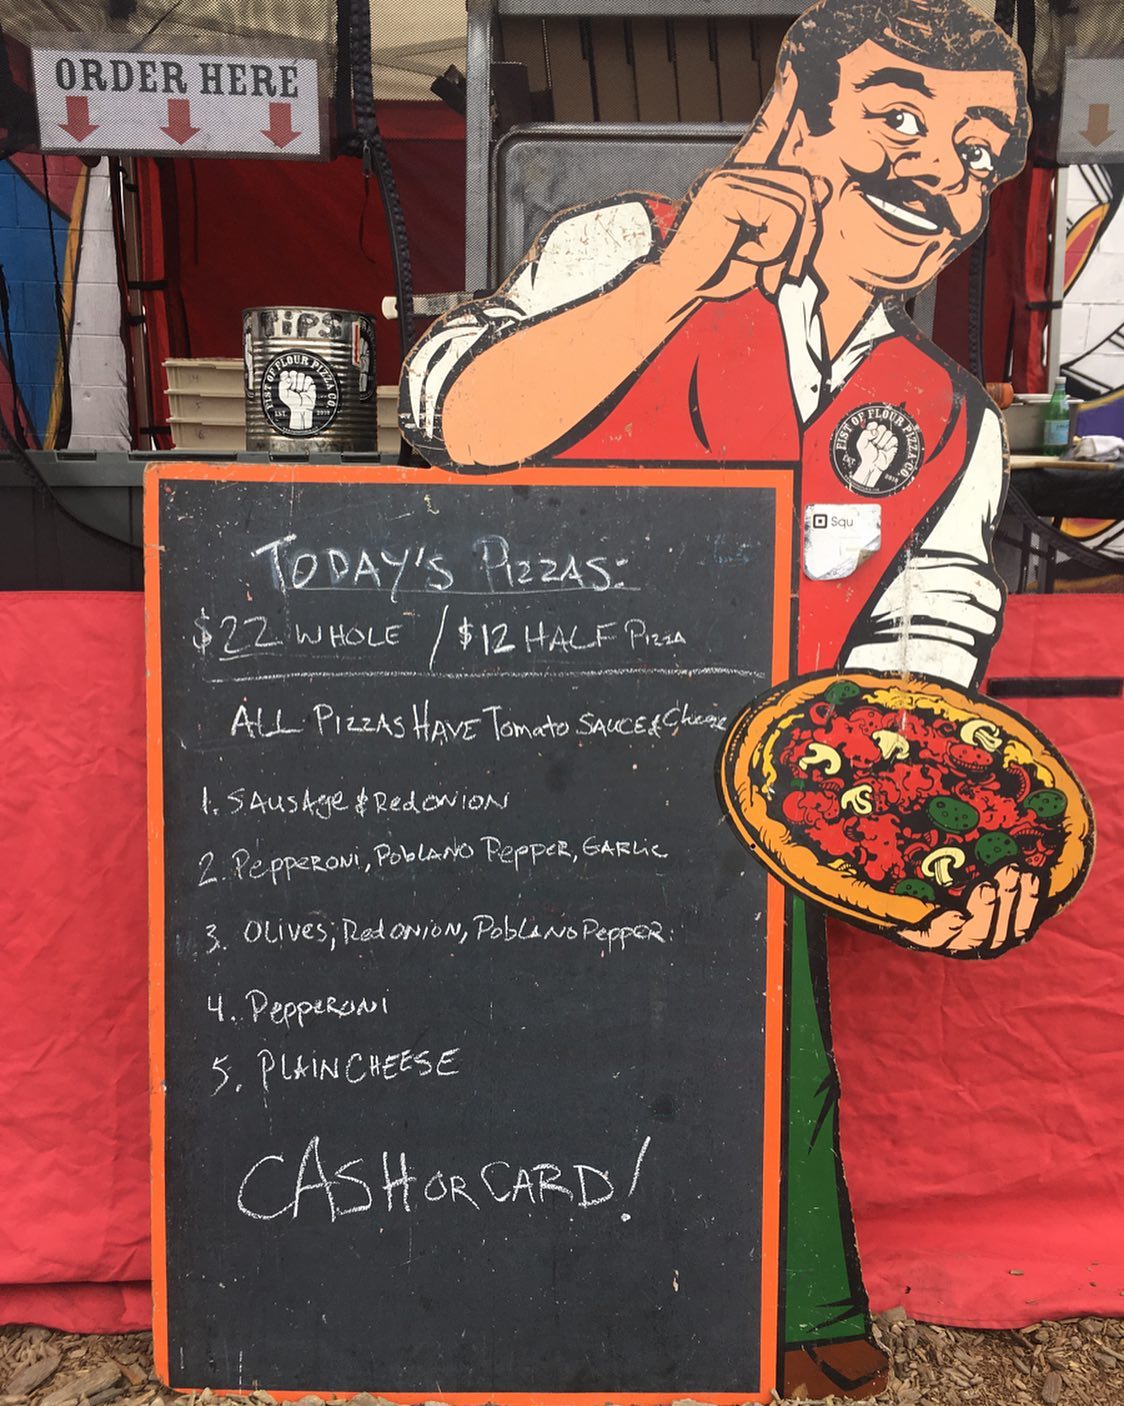 ORDER HERE
TIPS
FIST OF FLOUR PIZZA CO.
EST 2010
FIST OF FLOUR PIZZA CO.
EST 2010
Squ
TODAY'S PIZZAS:
$22 WHOLE / $12 HALF PIZZA
ALL PIZZAS HAVE Tomato SAUCE & Cheese
1. SAUSAge & Red ONION
2. Pepperoni, PoblANO Pepper, GARLic
3. OLIVES, Red ONION, PoblANO Pepper.
4. PeppeRONi
5. PLAIN CHEESE
CASH OR CARD!